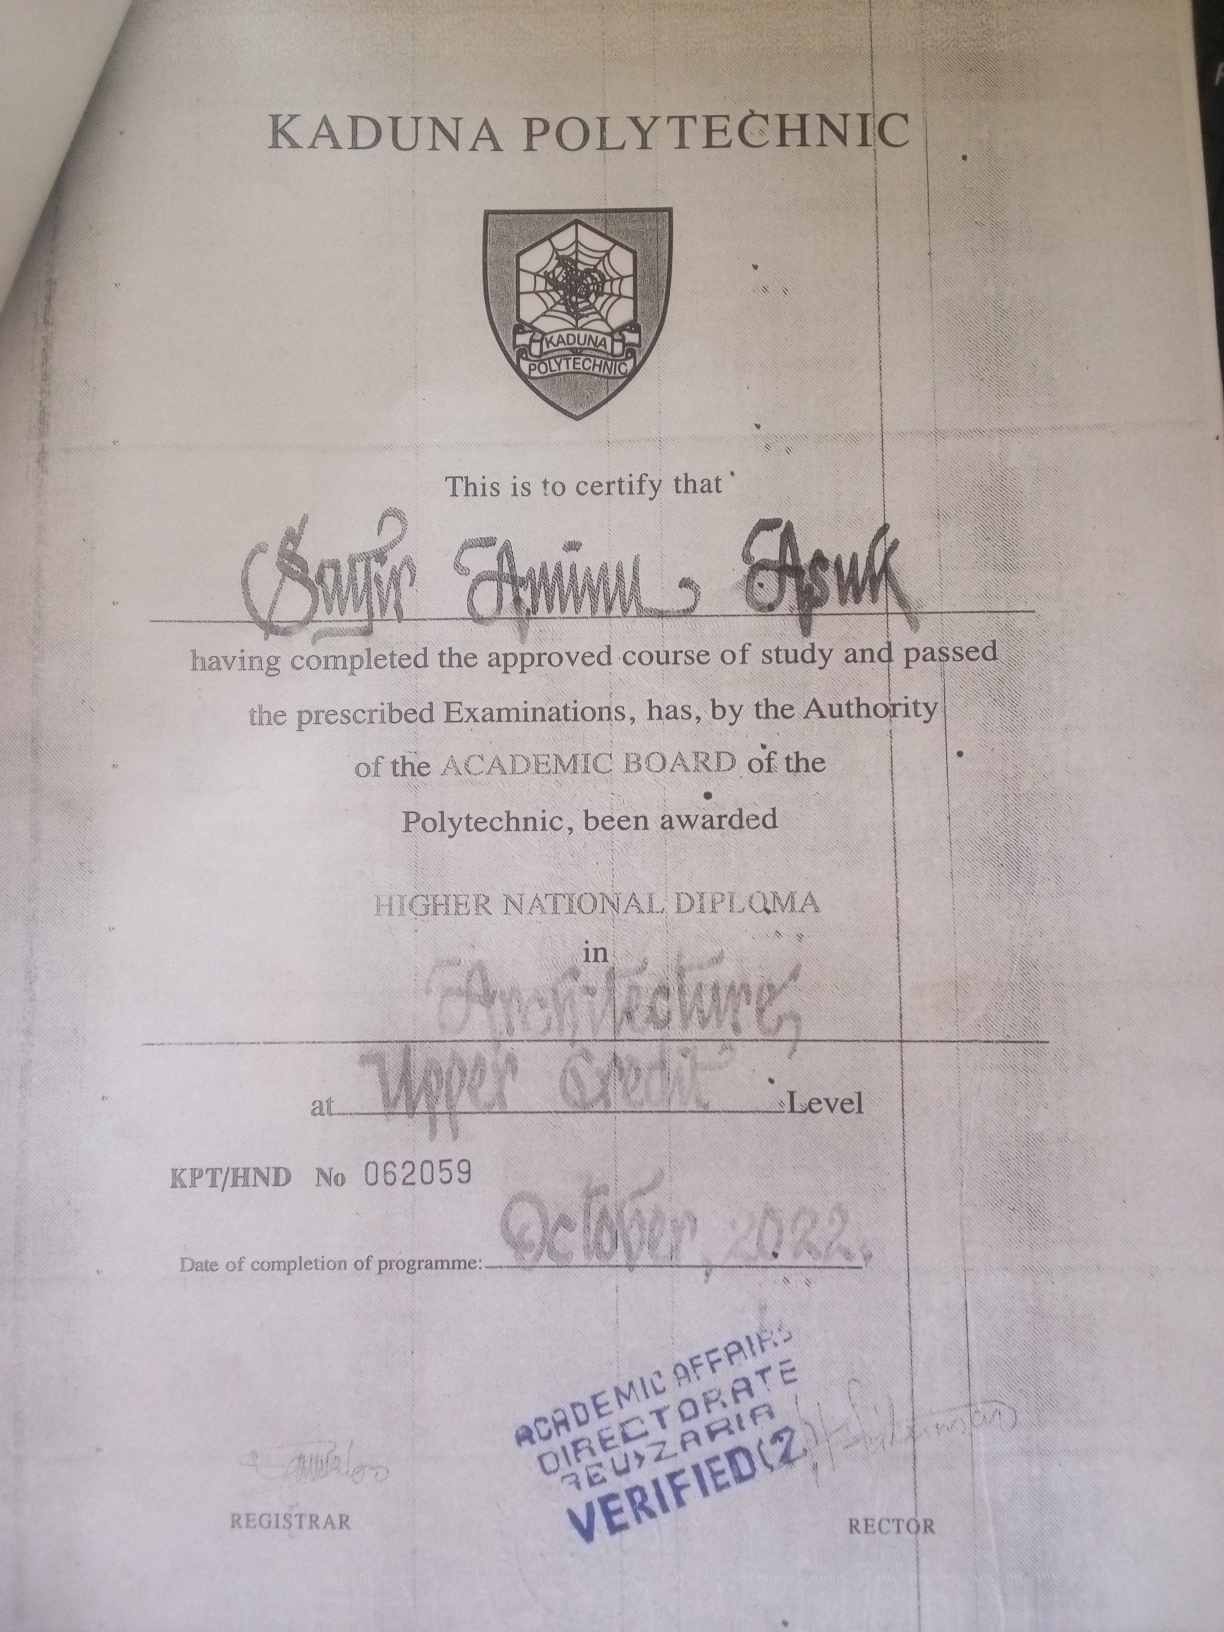 KADUNA POLYTECHNIC
KADUNA
POLYTECHNIC
This is to certify that
Sagir Aminu Asuk
having completed the approved course of study and passed
the prescribed Examinations, has, by the Authority
of the ACADEMIC BOARD of the
Polytechnic, been awarded
HIGHER NATIONAL DIPLOMA
in
Architecture,
at Upper Credit Level
KPT/HND No 062059
Date of completion of programme: October, 2022.
ACADEMIC AFFAIRS
DIRECTORATE
ZARIA
VERIFIED(2)
REGISTRAR
RECTOR